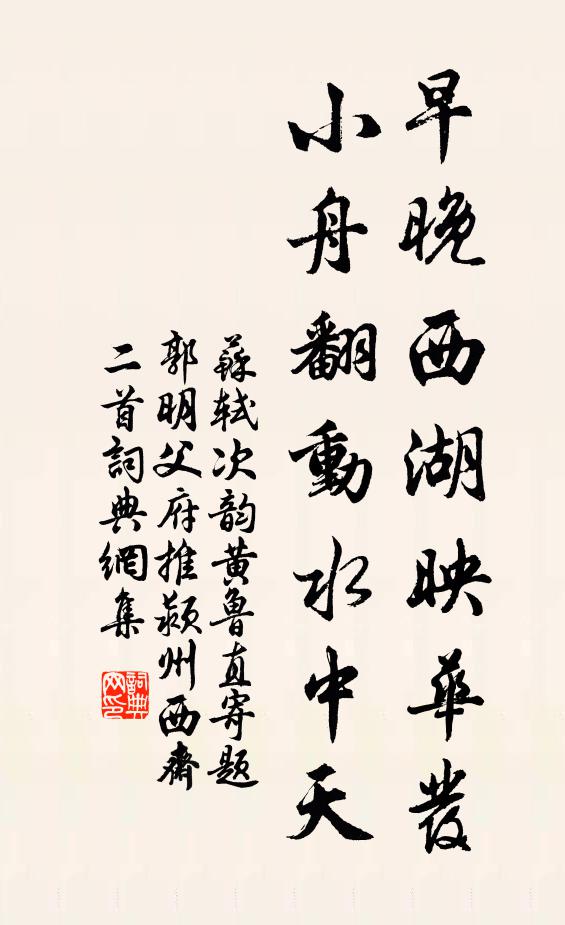 早晚西湖映華髮
小舟翻動水中天
蘇軾次韵黄魯直寄題
郭明父府推潁州西齋
二首詞典網集
詞典網印